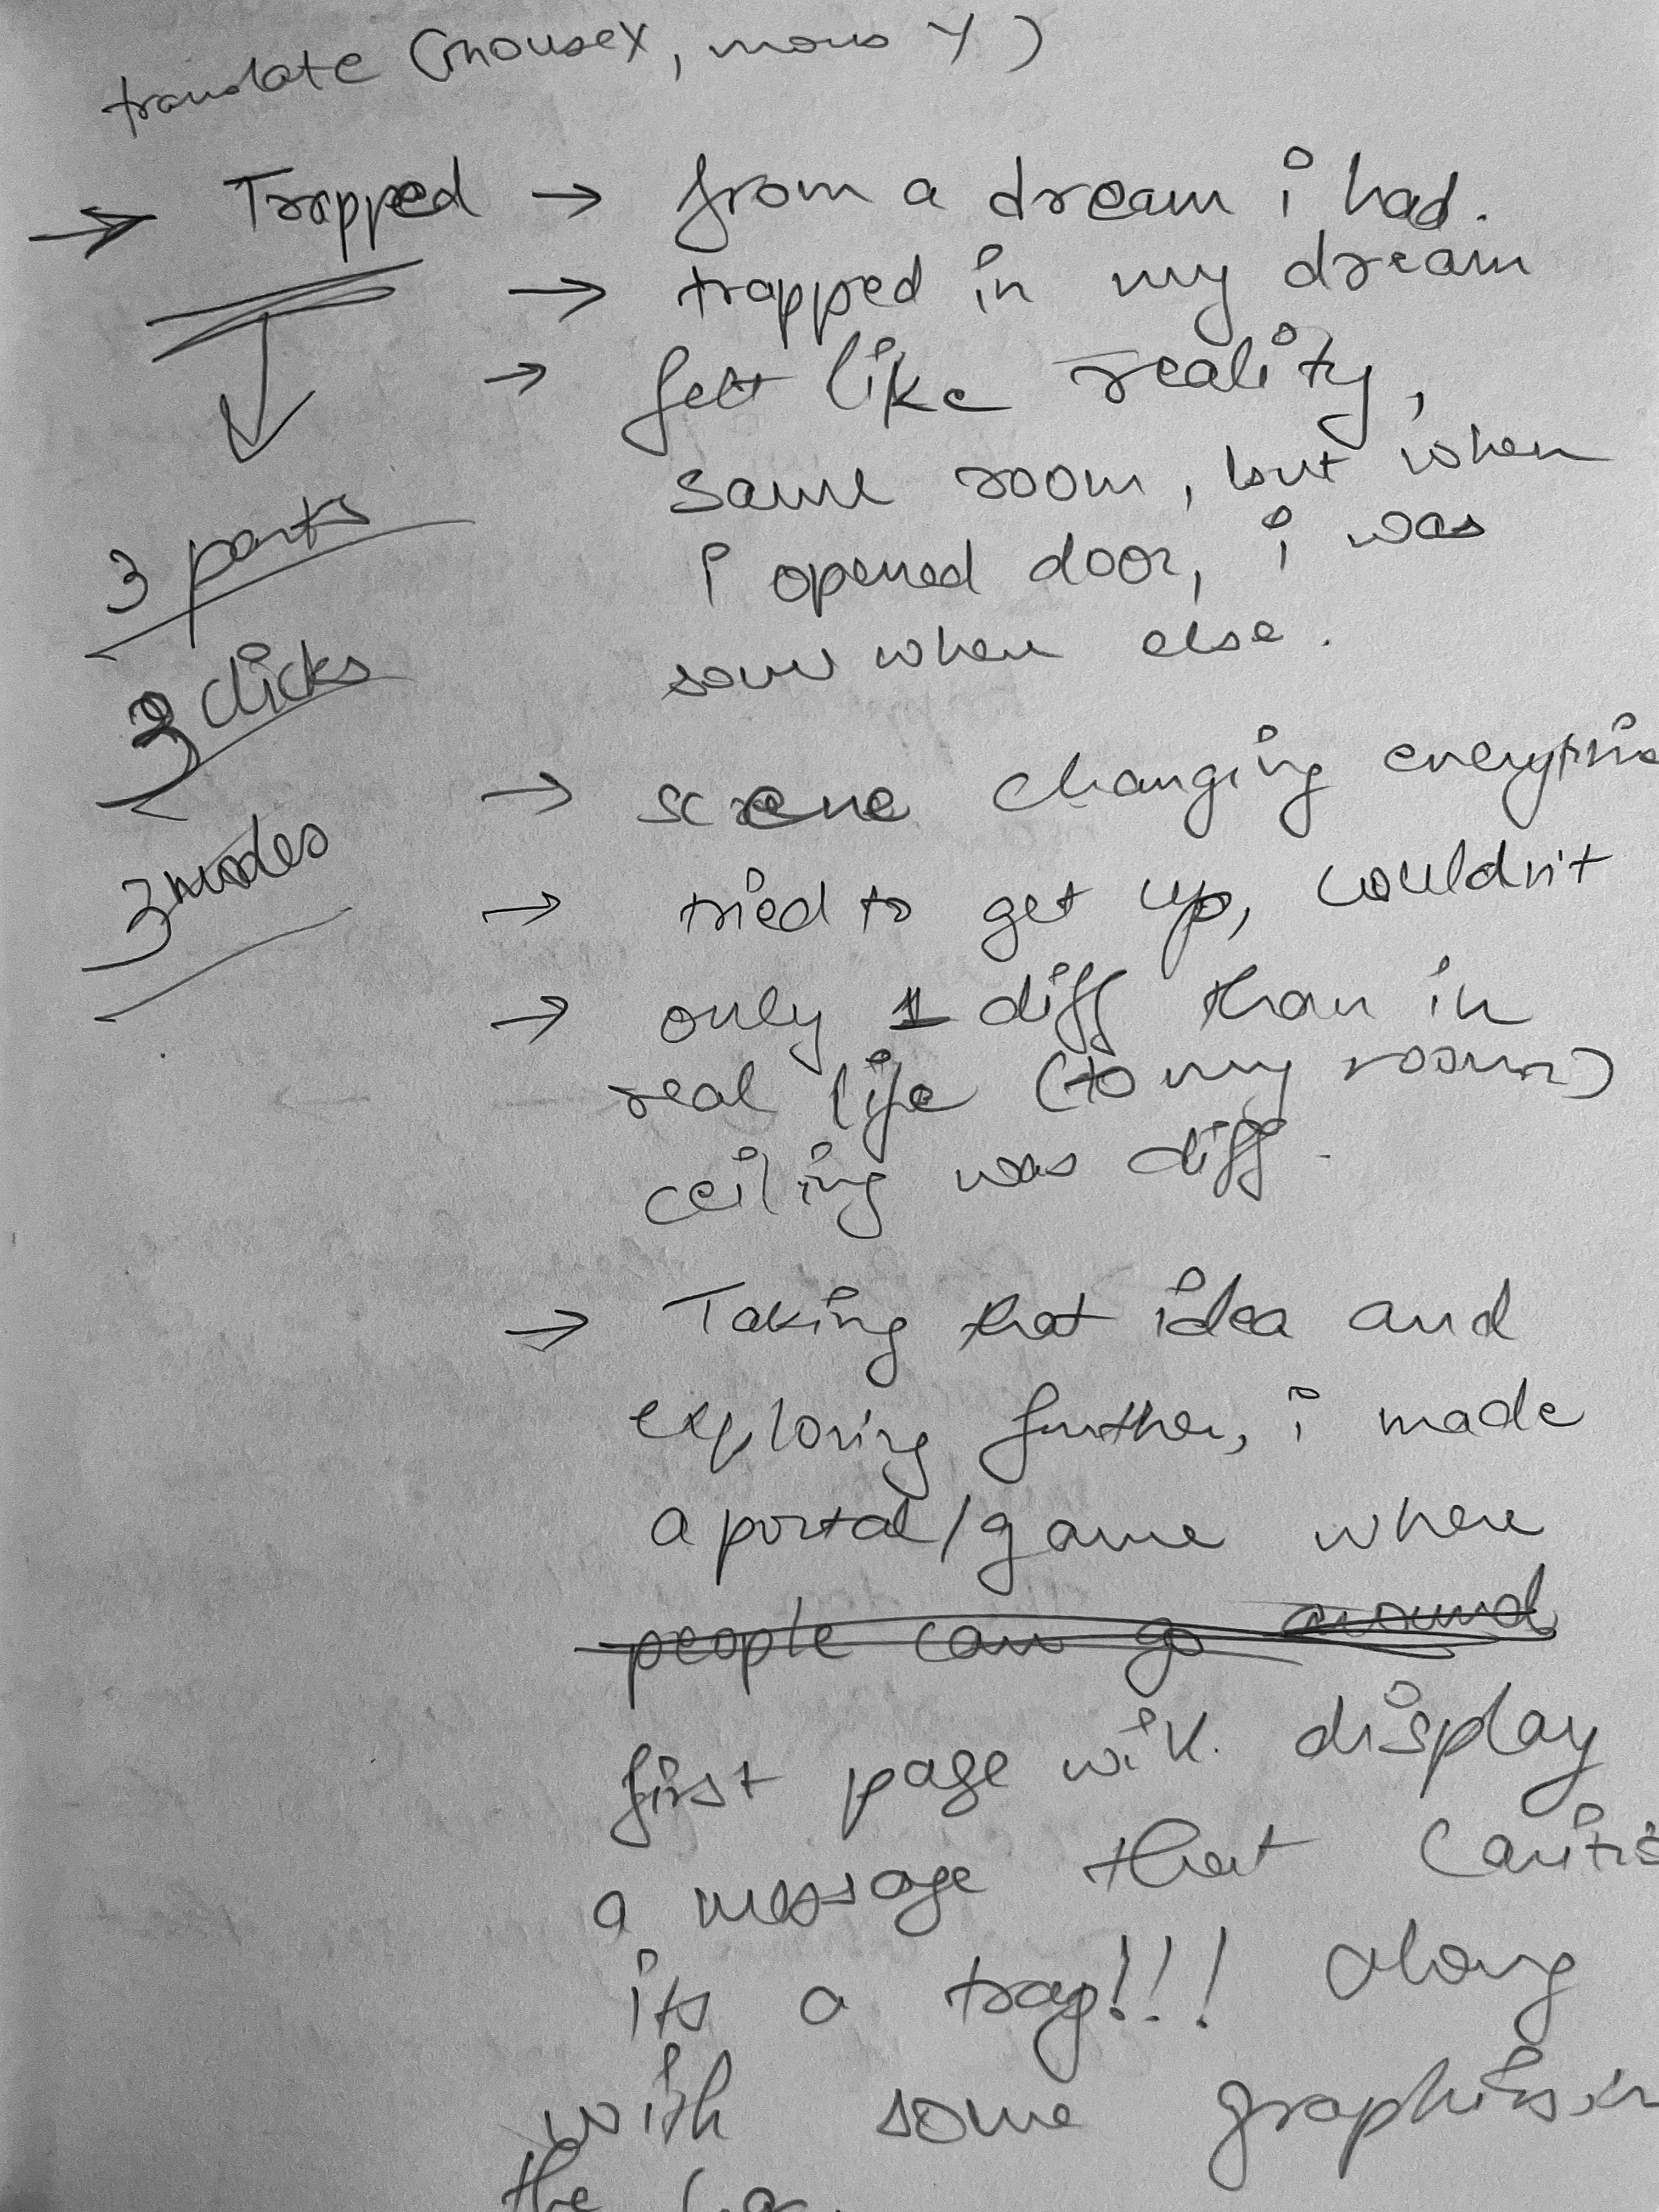 translate (mousex, mous Y)
→ Trapped → from a dream i had.
→ trapped in my dream
→ felt like reality,
same room, but when
i opened door, i was
some when else.
3 parts
3 clicks
3 modes
→ scene changing
→ tried to get up, couldn't
→ only 1 diff than in
real life (to my room)
ceiling was diff.
→ Taking that idea and
exploring further, i made
a portal/game where
people can go around
first page will display
a message that
its a trap!!! along
with some graphics in
the